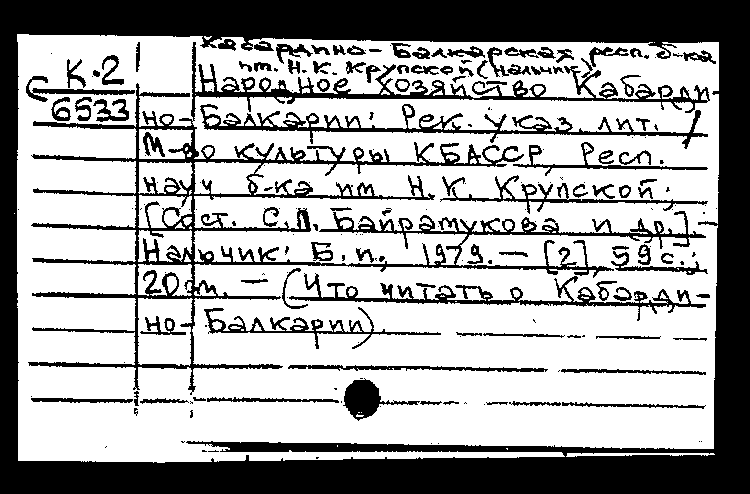 Кабардино-Балкарская респ. б-ка
им. Н.К. Крупской (Нальчик)
К-2
6533
Народное хозяйство Кабарди-
но-Балкарии: Рек. указ. лит. /
М-во культуры КБАССР, Респ.
науч б-ка им. Н.К. Крупской;
[Сост. С.Л. Байрамукова и др.].-
Нальчик: Б.и., 1979. — [2], 59 с.;
20 см. — (Что читать о Кабарди-
но-Балкарии).